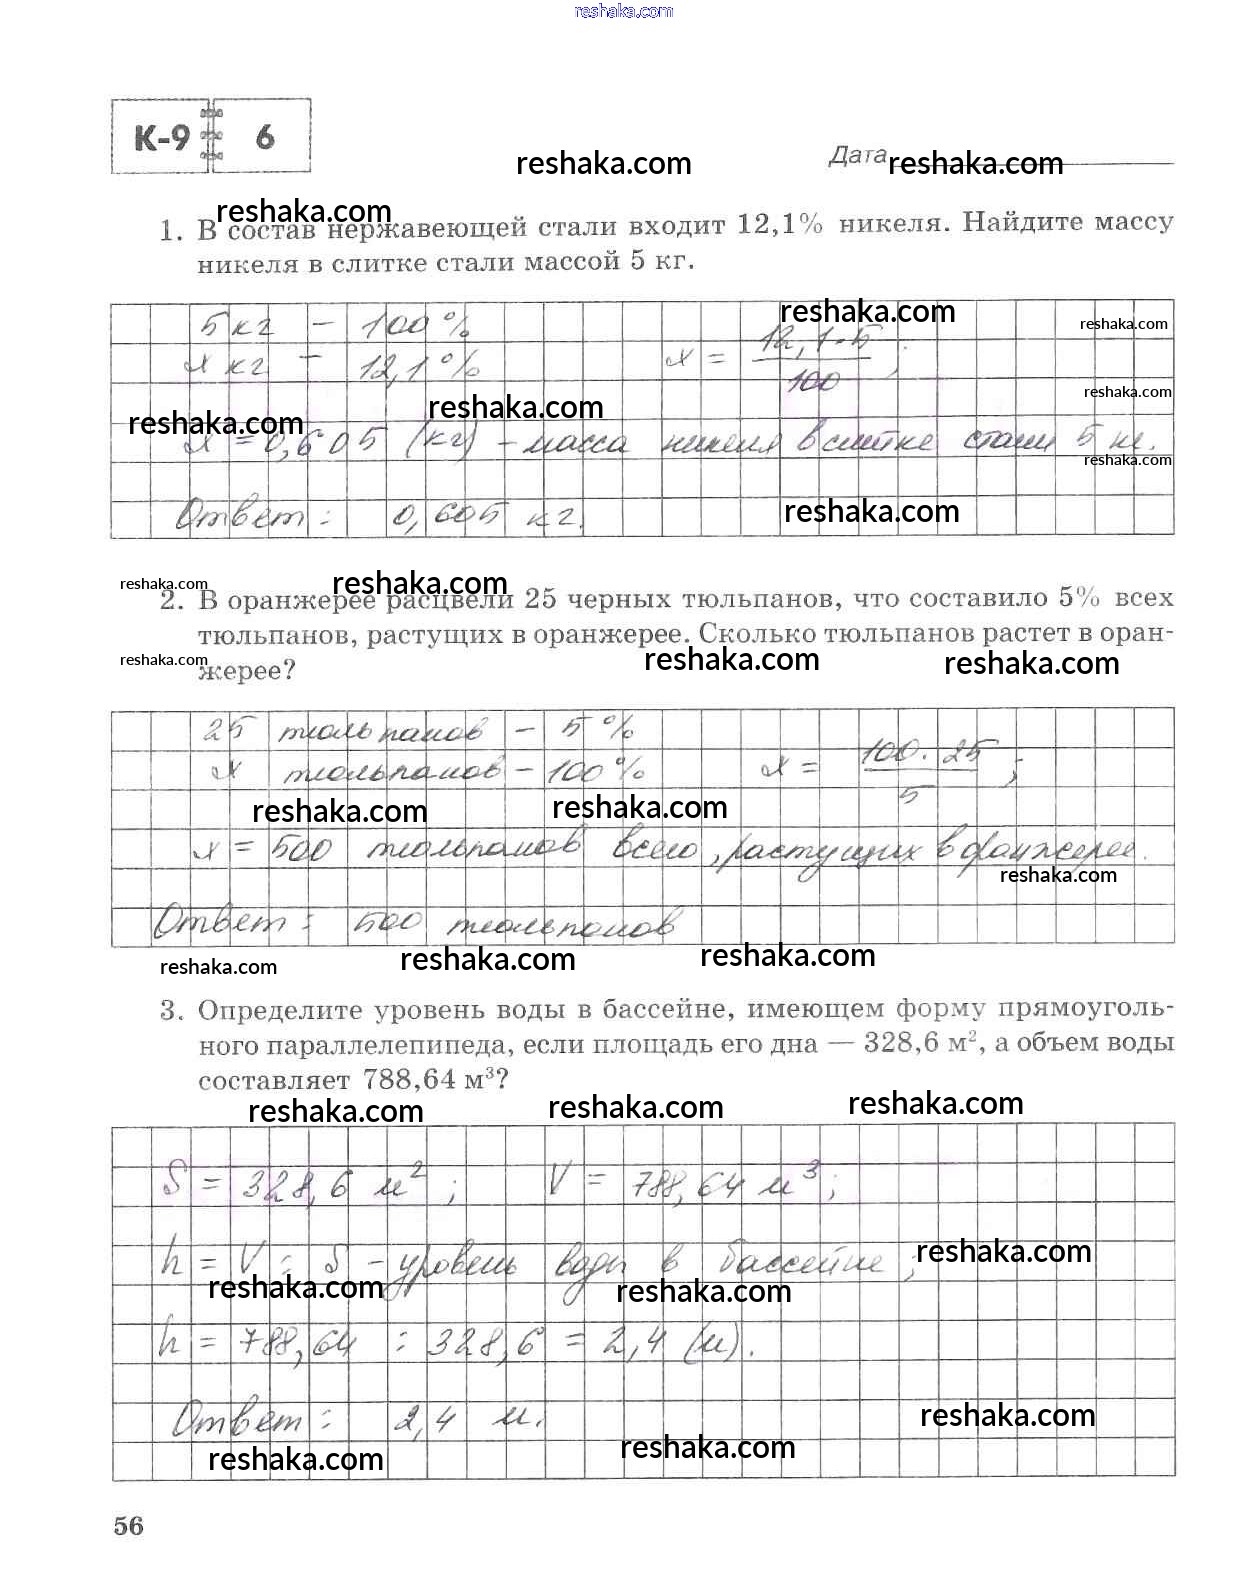 reshaka.com
К-9 6
reshaka.com Дата reshaka.com
reshaka.com
1. В состав нержавеющей стали входит 12,1% никеля. Найдите массу
никеля в слитке стали массой 5 кг.
reshaka.com
reshaka.com
5 кг – 100 %
х кг – 12,1 % х = 12,1·5 / 100 ;
reshaka.com
reshaka.com reshaka.com
х = 0,605 (кг) – масса никеля в слитке стали 5 кг.
reshaka.com
Ответ: 0,605 кг. reshaka.com
reshaka.com reshaka.com
2. В оранжерее расцвели 25 черных тюльпанов, что составило 5% всех
тюльпанов, растущих в оранжерее. Сколько тюльпанов растет в оран-
reshaka.com reshaka.com reshaka.com
жерее?
25 тюльпанов – 5 %
х тюльпанов – 100 % х = 100 · 25 / 5 ;
reshaka.com reshaka.com
х = 500 тюльпанов всего, растущих в оранжерее.
reshaka.com
Ответ: 500 тюльпанов
reshaka.com reshaka.com reshaka.com
3. Определите уровень воды в бассейне, имеющем форму прямоуголь-
ного параллелепипеда, если площадь его дна — 328,6 м², а объем воды
составляет 788,64 м³?
reshaka.com reshaka.com reshaka.com
S = 328,6 м² ; V = 788,64 м³ ;
h = V : S – уровень воды в бассейне ; reshaka.com
reshaka.com reshaka.com
h = 788,64 : 328,6 = 2,4 (м).
Ответ: 2,4 м. reshaka.com
reshaka.com reshaka.com
56